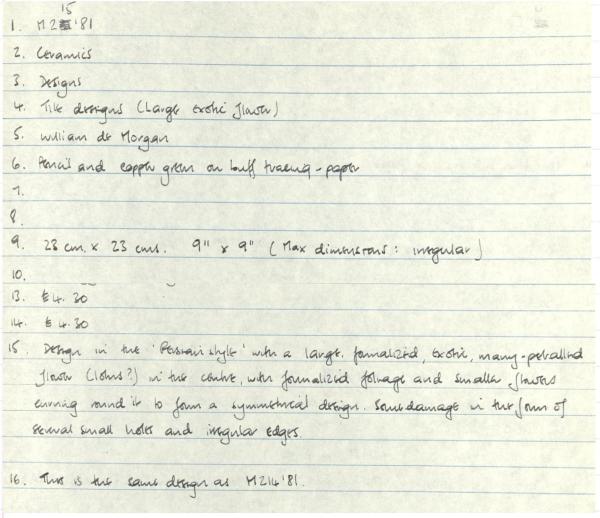 15
1. M2 '81
2. Ceramics
3. Designs
4. Tile designs (Large exotic flower)
5. William de Morgan
6. Pencil and copper green on buff tracing-paper
7.
8.
9. 23 cm. x 23 cms. 9" x 9" (Max dimensions: irregular)
10.
13. £4.30
14. £4.30
15. Design in the 'Persian style' with a large, formalized, exotic, many-petalled
flower (lotus?) in the centre, with formalized foliage and smaller flowers
curving round it to form a symmetrical design. Some damage in the form of
several small holes and irregular edges.
16. This is the same design as M214 '81.